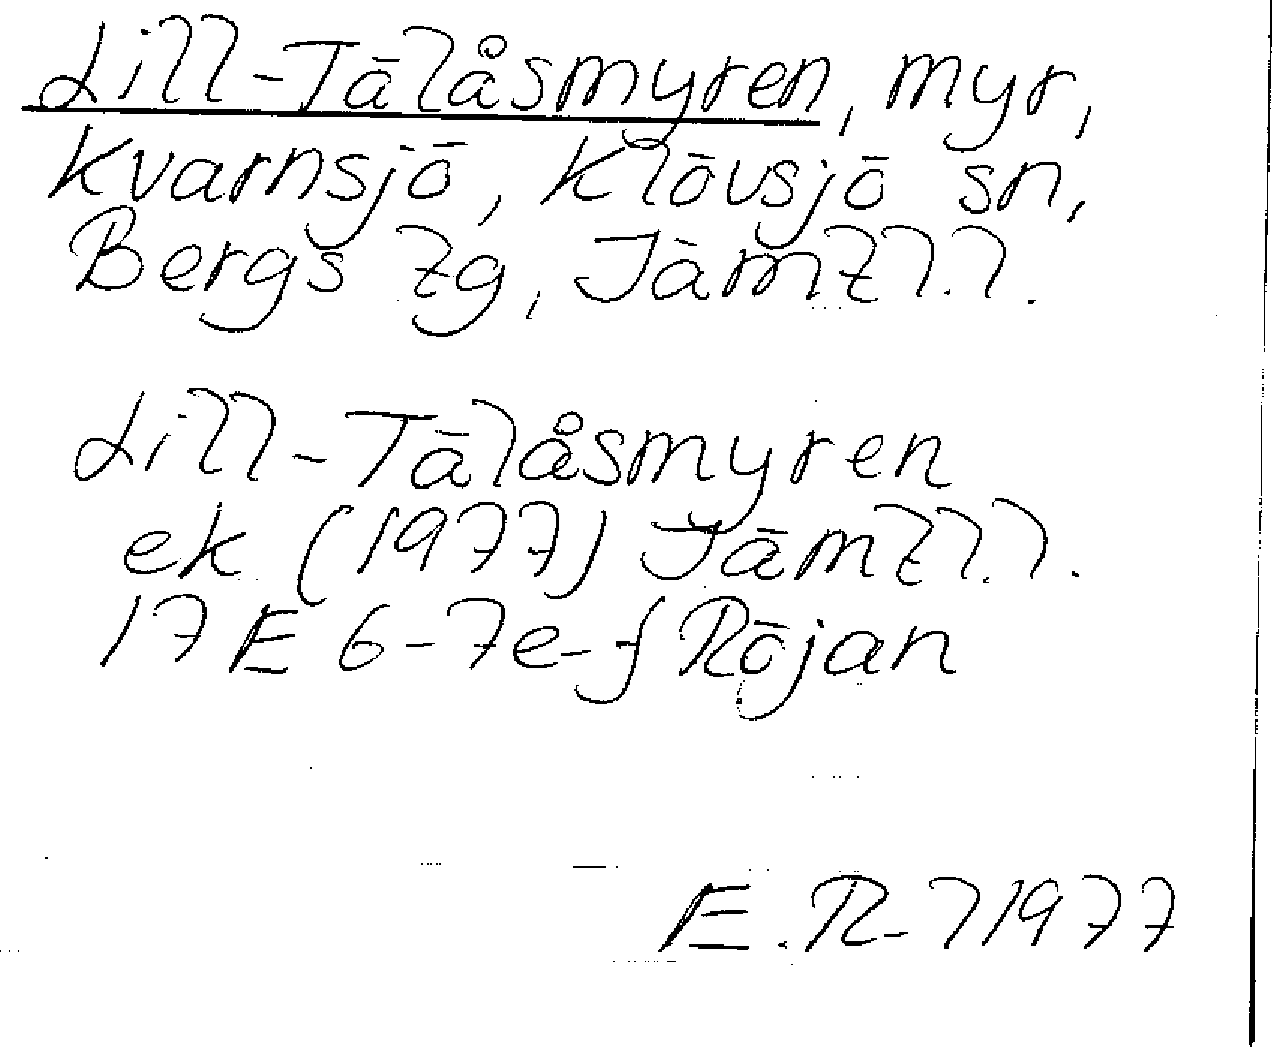 Lill-Tälåsmyren, myr,
Kvarnsjö, Klövsjö sn,
Bergs tg, Jämtl.l.
Lill-Tälåsmyren
ek (1977) Jämtl.l.
17E 6-7e-f Röjan
E.R-l 1977